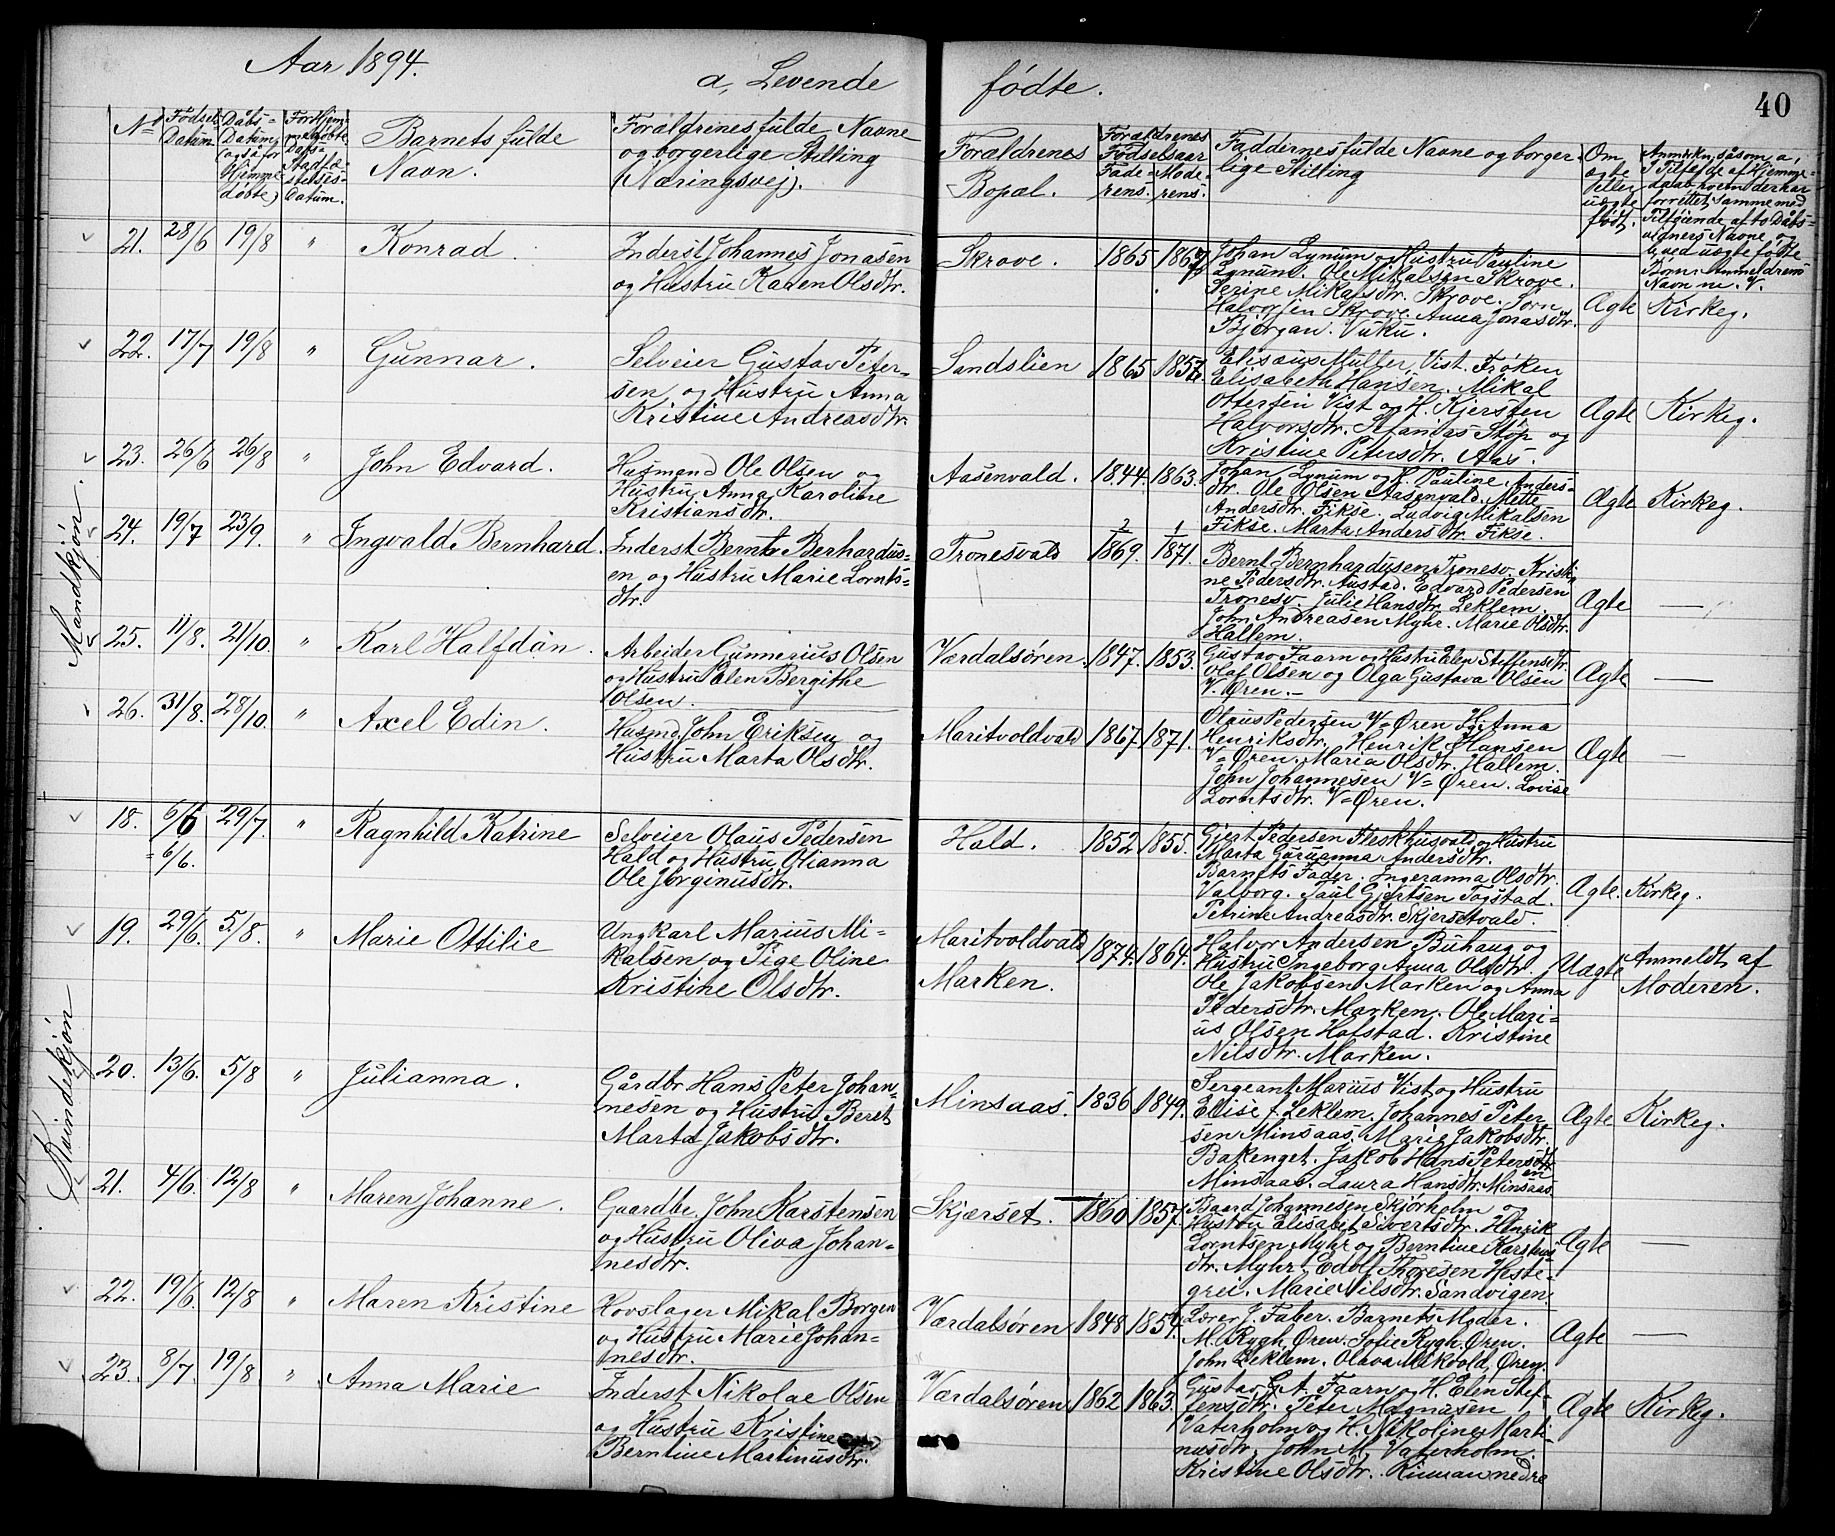 Aar 1894.
a, Levende fødte.
40
No
Fødsels Datum.
Dåbs=
Datum
(også for
Hjemme
døbte)
For Hjem=
medøbte
Dåbs=
Stadfæ=
stelses=
Datum.
Barnets fulde
Navn.
Forældrenes fulde Navne
og borgerlige Stilling
(Næringsvej).
Forældrenes
Bopæl.
Forældrenes
Fødselsaar
Fade= Mode=
rens. rens.
Faddernes fulde Navne og borger=
lige Stilling
Om
ægte
eller
uægte
født.
Anmærkn. såsom a,
I Tilfælde af Hjemme=
daab hvem der har
forrettet samme med
Tilføiende af to Dåbs=
vidners Navne, og
b, ved uægte fødte
Børn: Anmelderens
Navn m. V.
Mandkjøn.
21. 28/6 19/8 " Konrad.
Inderst Johannes Jonasen
og Hustru Karen Olsdtr.
Skrove. 1865 1867
Johan Lynum og Hustru Pauline
Lynum. Ole Mikalsen Skrove.
Serine Mikalsdtr. Skrove. Sørn
Halvorsen Skrove. Anna Jonasdtr.
Bjørgan. Vuku.
Ægte Kirkeg.
22. 17/7 19/8 " Gunnar.
Selveier Gustav Peter=
sen og Hustru Anna
Kristine Andreasdtr.
Sandslien 1865 1857
Elisæus Müller, Vist. Frøken
Elisabeth Hansen. Mikal
Ottersen Vist og H. Kjersten
Halvorsdtr. Hanias Støp og
Kristine Petersdtr. Aas.
Ægte Kirkeg.
23. 26/6 26/8 " John Edvard.
Husmand Ole Olsen og
Hustru Anna Karoline
Kristiansdtr.
Aasenvald. 1844. 1863.
Johan Lynum og H. Pauline Anders=
dtr. Ole Olsen Aasenvald. Mette
Andersdtr. Fikse. Ludvig Mikalsen
Fikse. Marta Andersdtr. Fikse.
Ægte Kirkeg.
24. 19/7 23/9. " Ingvald Bernhard.
Inderst Bernt Berhardus=
en og Hustru Marie Lornts=
dtr.
Tronesvald 2/1869. 1/1871.
Bernt Bernhardusen Tronesv. Kristi
ne Pedersdtr. Austad. Edvard Pedersen
Tronesv. Julie Hansdtr. Leklem.
John Andreasen Myhr. Marie Olsdtr.
Hallem.
Ægte —
25. 11/8. 21/10. " Karl Halfdan.
Arbeider Gunnerius Olsen
og Hustru Elen Bergithe
Olsen.
Værdalsøren. 1847. 1853.
Gustav Faarn og Hustru Elen Steffensdtr.
Olaf Olsen og Olga Gustava Olsen
V. Øren. —
Ægte —
26. 31/8. 28/10. " Axel Edin.
Husmd. John Eriksen og
Hustru Marta Olsdtr.
Maritvoldvald 1867. 1871.
Olaus Pedersen V=Øren H. Anna
Henriksdtr. Henrik Hansen
V=Øren. Maria Olsdtr. Hallem.
John Johannesen V=Øren. Lovise
Lorntsdtr. V=Øren.
Ægte —
Kvindekjøn
18. 6/6 29/7. " Ragnhild Katrine
= 6/6.
Selveier Olaus Pedersen
Hald og Hustru Olianna
Ole Jørginusdtr.
Hald. 1852 1855.
Gjert Pedersen Fleskhusvald og Hustru
Marta Guruanna Andersdtr.
Barnets Fader. Ingeranna Olsdtr.
Valborg. Paul Gjertsen Togstad.
Petrine Andreasdtr. Skjersetvald.
Ægte. Kirkeg.
19. 29/6. 5/8. " Marie Ottilie
Ungkarl Marius Mi=
kalsen og Pige Oline
Kristine Olsdtr.
Maritvoldvald
Marken. 1874. 1864.
Halvor Andersen Buhaug og
Hustru Ingeborg Anna Olsdtr.
Ole Jakobsen Marken og Anna
Pedersdtr. Marken. Ole Mari=
us Olsen Hofstad. Kristine
Nilsdtr. Marken.
Uægte Anmeldt af
Moderen.
20. 13/6. 5/8 " Julianna.
Gårdbr Hans Peter Johan=
nesen og Hustru Beret
Marta Jakobsdtr.
Minsaas. 1836 1849.
Sergeant Marius Vist og Hustru
Elise f. Leklem. Johannes Peter
sen Minsaas. Marie Jakobsdtr.
Bakenget. Jakob Hans Petersdtr
en
Minsaas. Laura Hansdtr. Minsaas
Ægte Kirkeg.
21. 4/6. 12/8 " Maren Johanne.
Gaardbr. John Karstensen
og Hustru Oliva Johan=
nesdtr.
Skjærset. 1860 1857.
Baard Johannesen Skjørholm og
Hustru Elisabet Sivertsdtr. Henrik
Lorntsen Myhr og Berntine Karstens
dtr. Myhr. Edolf Thoresen Heste=
grei. Marie Nilsdtr. Sandvigen.
Ægte —
22. 19/6. 12/8 " Maren Kristine
Hovslager Mikal Borgen
og Hustru Marie Johan=
nesdtr.
Værdalsøren 1848 1854.
Lærer J. Faber. Barnets Moder.
M. A. Rygh. Øren. Sofie Rygh. Øren.
John Leklem. Olava Mikvold, Øren.
Ægte —
23. 8/7. 19/8 " Anna Marie
Inderst Nikolae Olsen
og Hustru Kristine
Berntine Martinusdtr.
Værdalsøren 1862 1863.
Gustav G. A. Faarn og H. Elen Stef=
fensdtr. Peter Magnusen
Vaterholm og H. Nikoline Marti=
nusdtr. John M. Vaterholm.
Kristine Olsdtr. Rinnan nedre
Ægte Kirkeg.